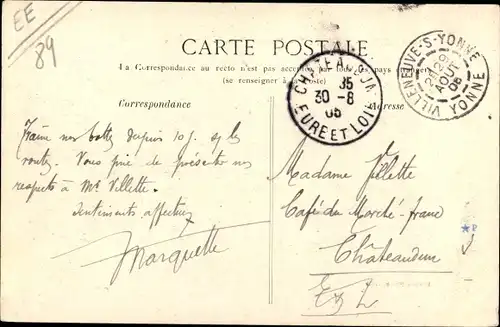 EE
89
CARTE POSTALE
La Correspondance au recto n'est pas acceptée par tous les pays
(se renseigner à la poste)
Correspondance
Adresse
CHATEAUDUN
35
30-8
05
EURE ET LOIR
VILLENEUVE-S-YONNE
29
AOUT
05
YONNE
nos bottes depuis 10 j. sur les
routes. Vous prie de présenter nos
respects à Mr Villette.
Sentiments affectueux
Marquette
Madame Villette
Café du Marché-franc
Châteaudun
E & L